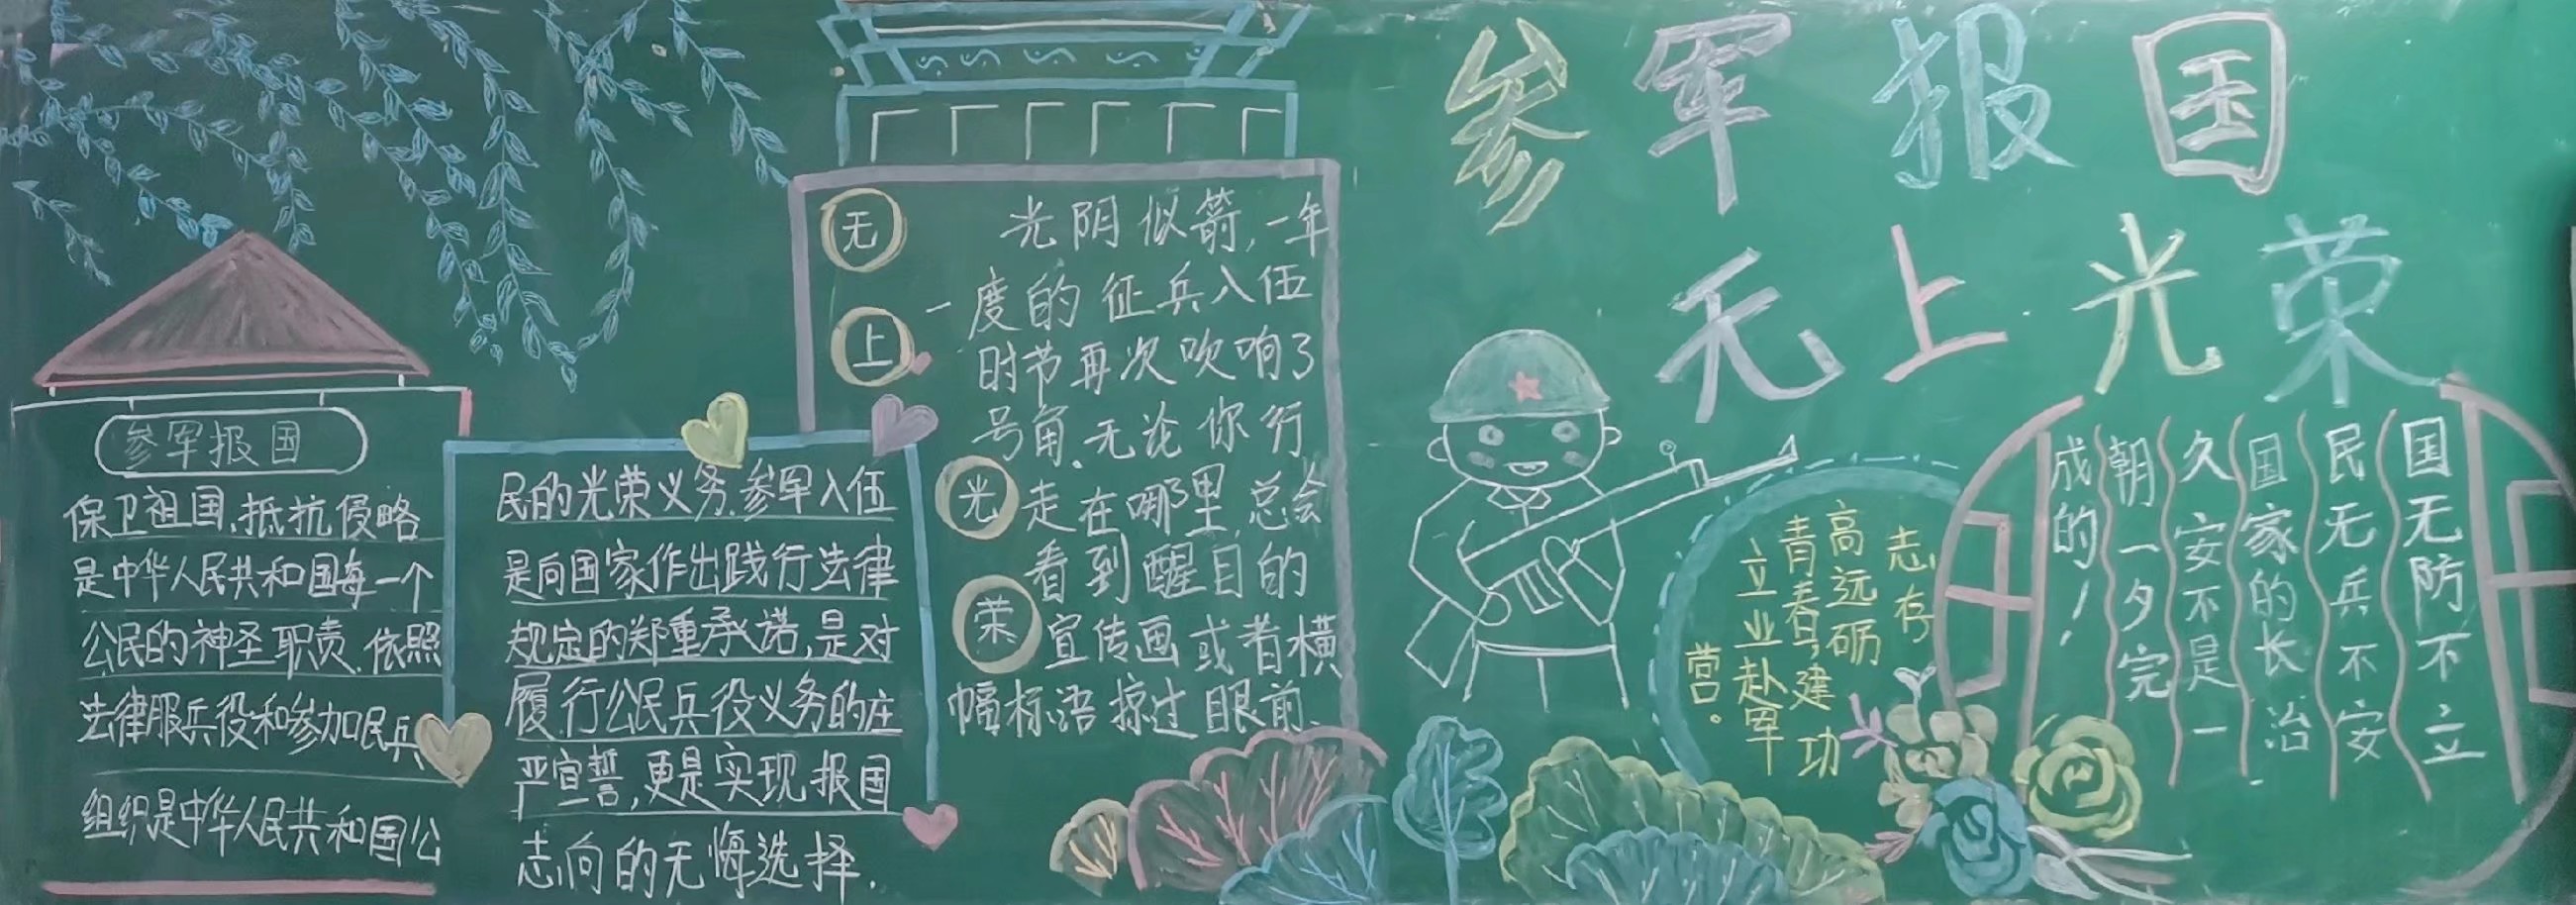 参军报国
无上光荣
参军报国
保卫祖国,抵抗侵略
是中华人民共和国每一个
公民的神圣职责.依照
法律服兵役和参加民兵
组织是中华人民共和国公
民的光荣义务.参军入伍
是向国家作出践行法律
规定的郑重承诺,是对
履行公民兵役义务的庄
严宣誓,更是实现报国
志向的无悔选择.
无
上
光
荣
光阴似箭,一年
一度的征兵入伍
时节再次吹响了
号角.无论你行
走在哪里.总会
看到醒目的
宣传画或者横
幅标语掠过眼前.
志存
高远砺
青春建功
立业赴军
营。
国无防不立
民无兵不安
国家的长治
久安不是一
朝一夕完
成的!